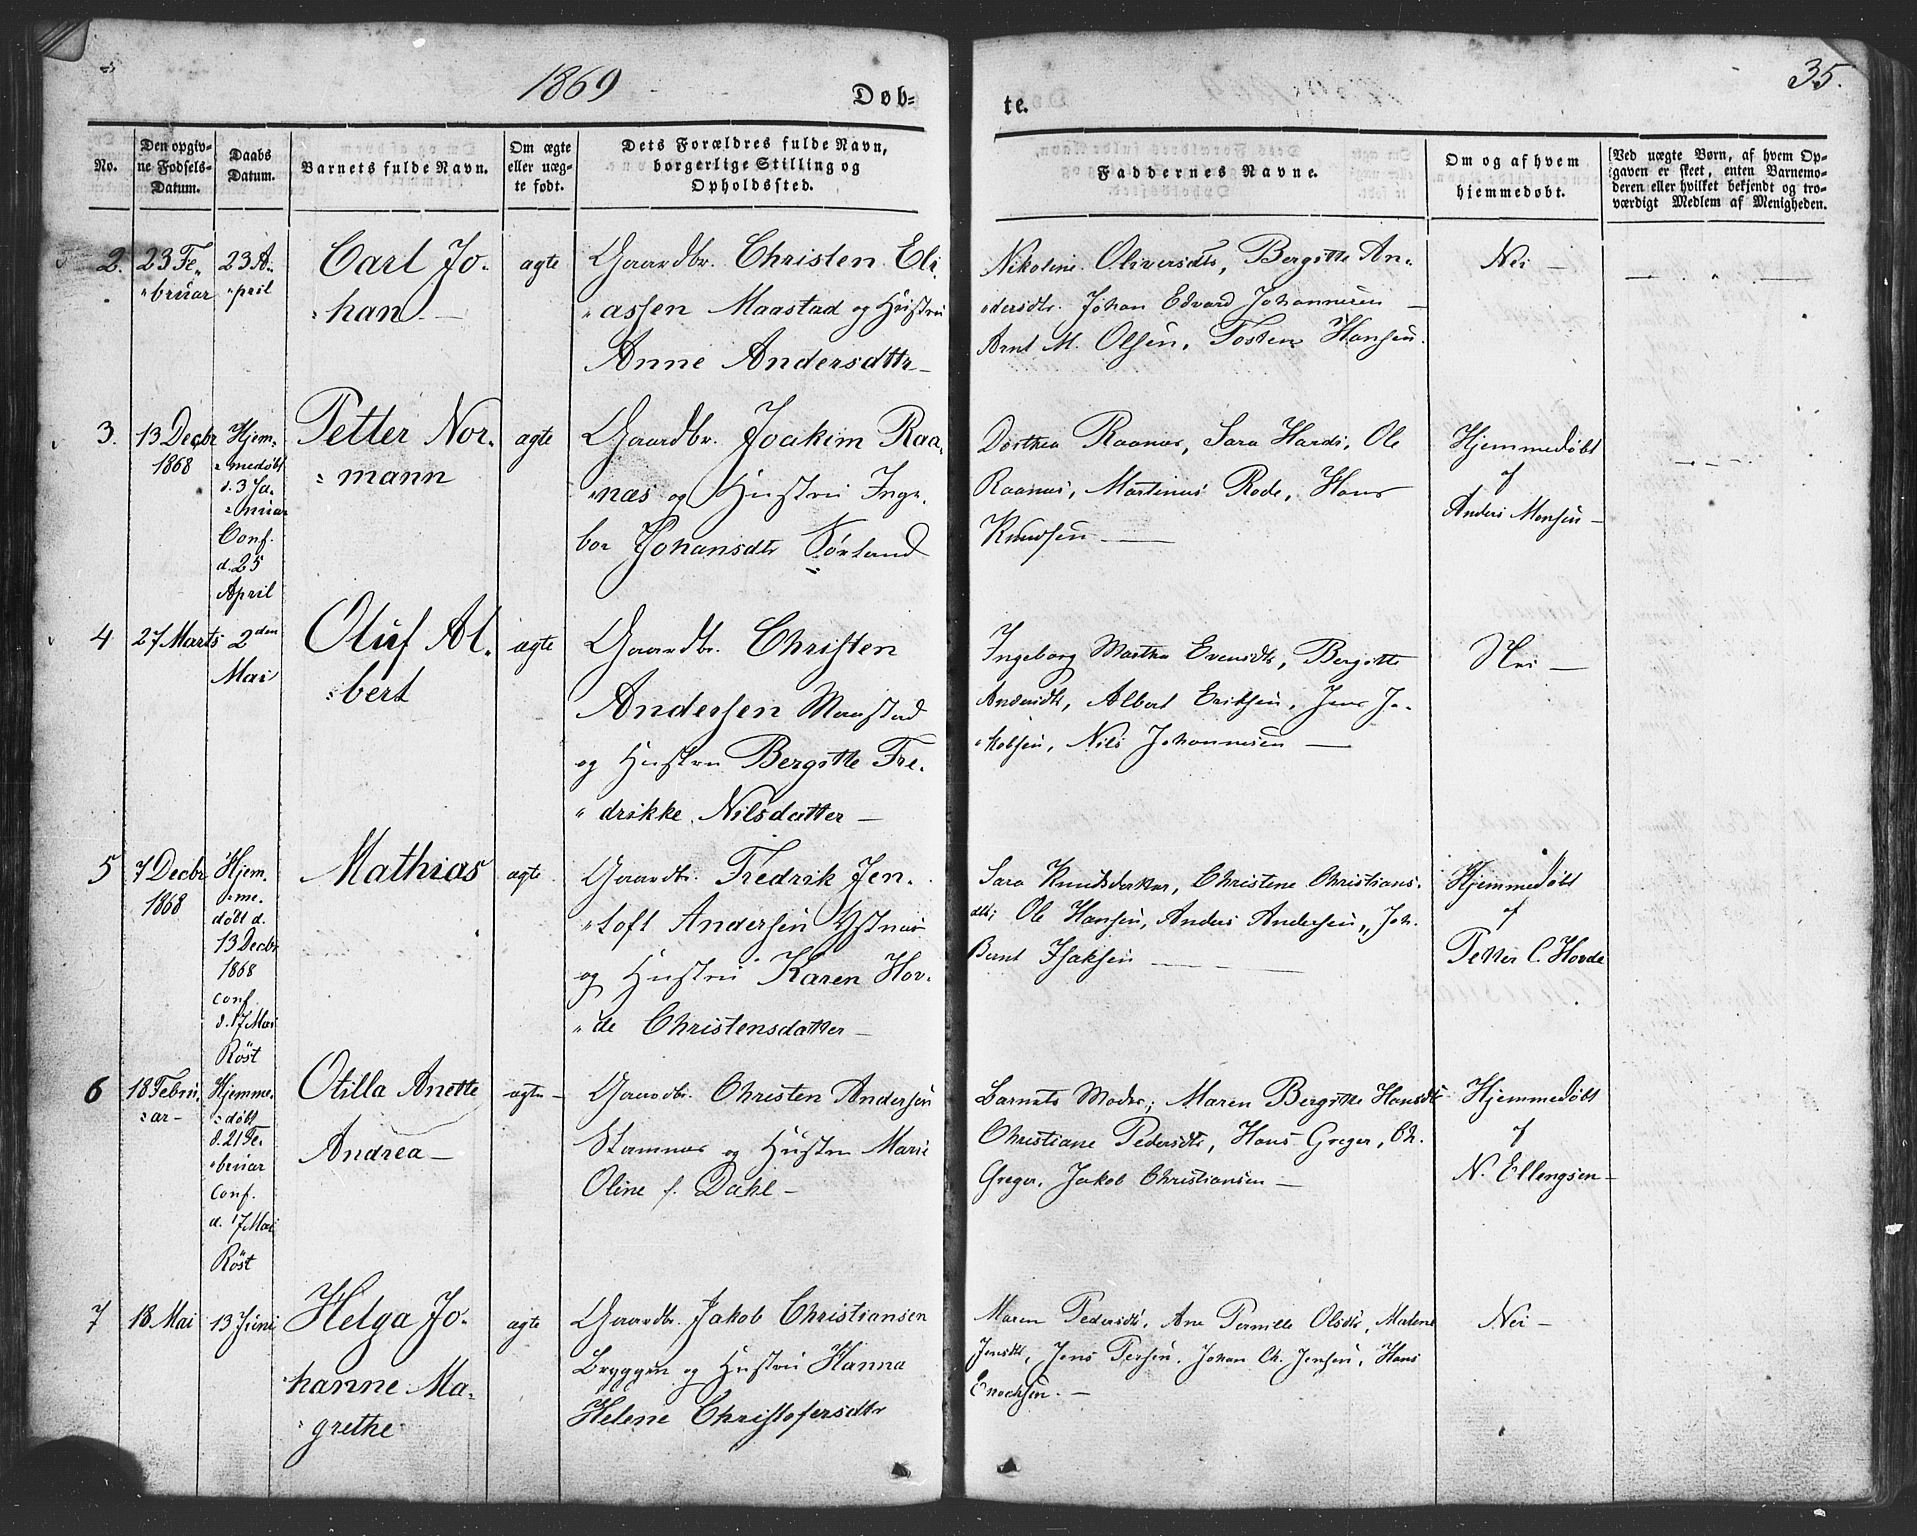 1869
Døb-
te.
35.
No.
Den opgiv-
ne Fødsels-
Datum.
Daabs
Datum.
Barnets fulde Navn.
Om ægte
eller uæg-
te født.
Dets Forældres fulde Navn,
borgerlige Stilling og
Opholdssted.
Faddernes Navne.
Om og af hvem
hjemmedøbt.
Ved uægte Børn, af hvem Op-
gaven er skeet, enten Barnemo-
deren eller hvilket bekjendt og tro-
værdigt Medlem af Menigheden.
2.
23 Fe-
bruar
23 A-
pril
Carl Jo-
han
ægte
Gaardbr. Christen Eli-
assen Maastad og Hustru
Anne Andersdttr
Nikoline Oliversdtr, Bergitte An-
dersdtr. Johan Edvard Johannesen
Arnt M. Olsen, Tosten Hansen
Nei
3.
13 Decbr
1868
Hjem-
medøbt
d. 3 Ja-
nuar
Conf.
d. 25
April
Petter Nor-
mann
ægte
Gaardbr. Joakim Raa-
næs og Hustru Inge-
bor Johansdtr Sørland
Dorthea Raanæs, Sara Hardi, Ole
Raanæs, Martinus Rode, Hans
Knudsen
Hjemmedøbt
af
Anders Monsen
4
27 Marts
2den
Mai
Oluf Al-
bert
ægte
Gaardbr. Christen
Andersen Maastad
og Hustru Bergitte Fre-
drikke Nilsdatter
Ingeborg Martha Evensdtr, Bergitte
Andersdtr, Albert Eriksen, Jens Ja-
kobsen, Nils Johannesen
Nei
5
7 Decbr
1868
Hjem-
me-
døbt d.
13 Decbr
1868
conf.
d. 17 Mai
Röst
Mathias
ægte
Gaardbr. Fredrik Jen-
toft Andersen Ystnæs
og Hustru Karen Hov-
de Christensdatter
Sara Knudsdatter, Christene Christians-
dtr, Ole Hansen, Anders Andersen, Joh.
Bernt Isaksen
Hjemmedøbt
af
Petter C. Hovde
6
18 Febru-
ar
Hjemme-
døbt
d. 21 Fe-
bruar
Conf.
d. 17 Mai
Röst
Otilla Anette
Andrea
ægte
Gaardbr. Christen Andersen
Stamnæs og Hustru Marie
Oline f. Dahl
Barnets Moder, Maren Bergitte Hansdtr
Christiane Pedersdtr, Hans Greger, Ch.
Greger, Jakob Christiansen
Hjemmedøbt
af
N. Ellengsen
7
18 Mai
13 Juni
Helga Jo-
hanne Ma-
grethe
ægte
Gaardbr. Jakob Christiansen
Bryggen og Hustru Hanna
Helene Christofersdtr
Maren Pedersdtr, Ane Pernille Olsdtr, Malene
Jensdtr, Jens Persen, Johan Ch. Jensen, Hans
Enochsen.
Nei